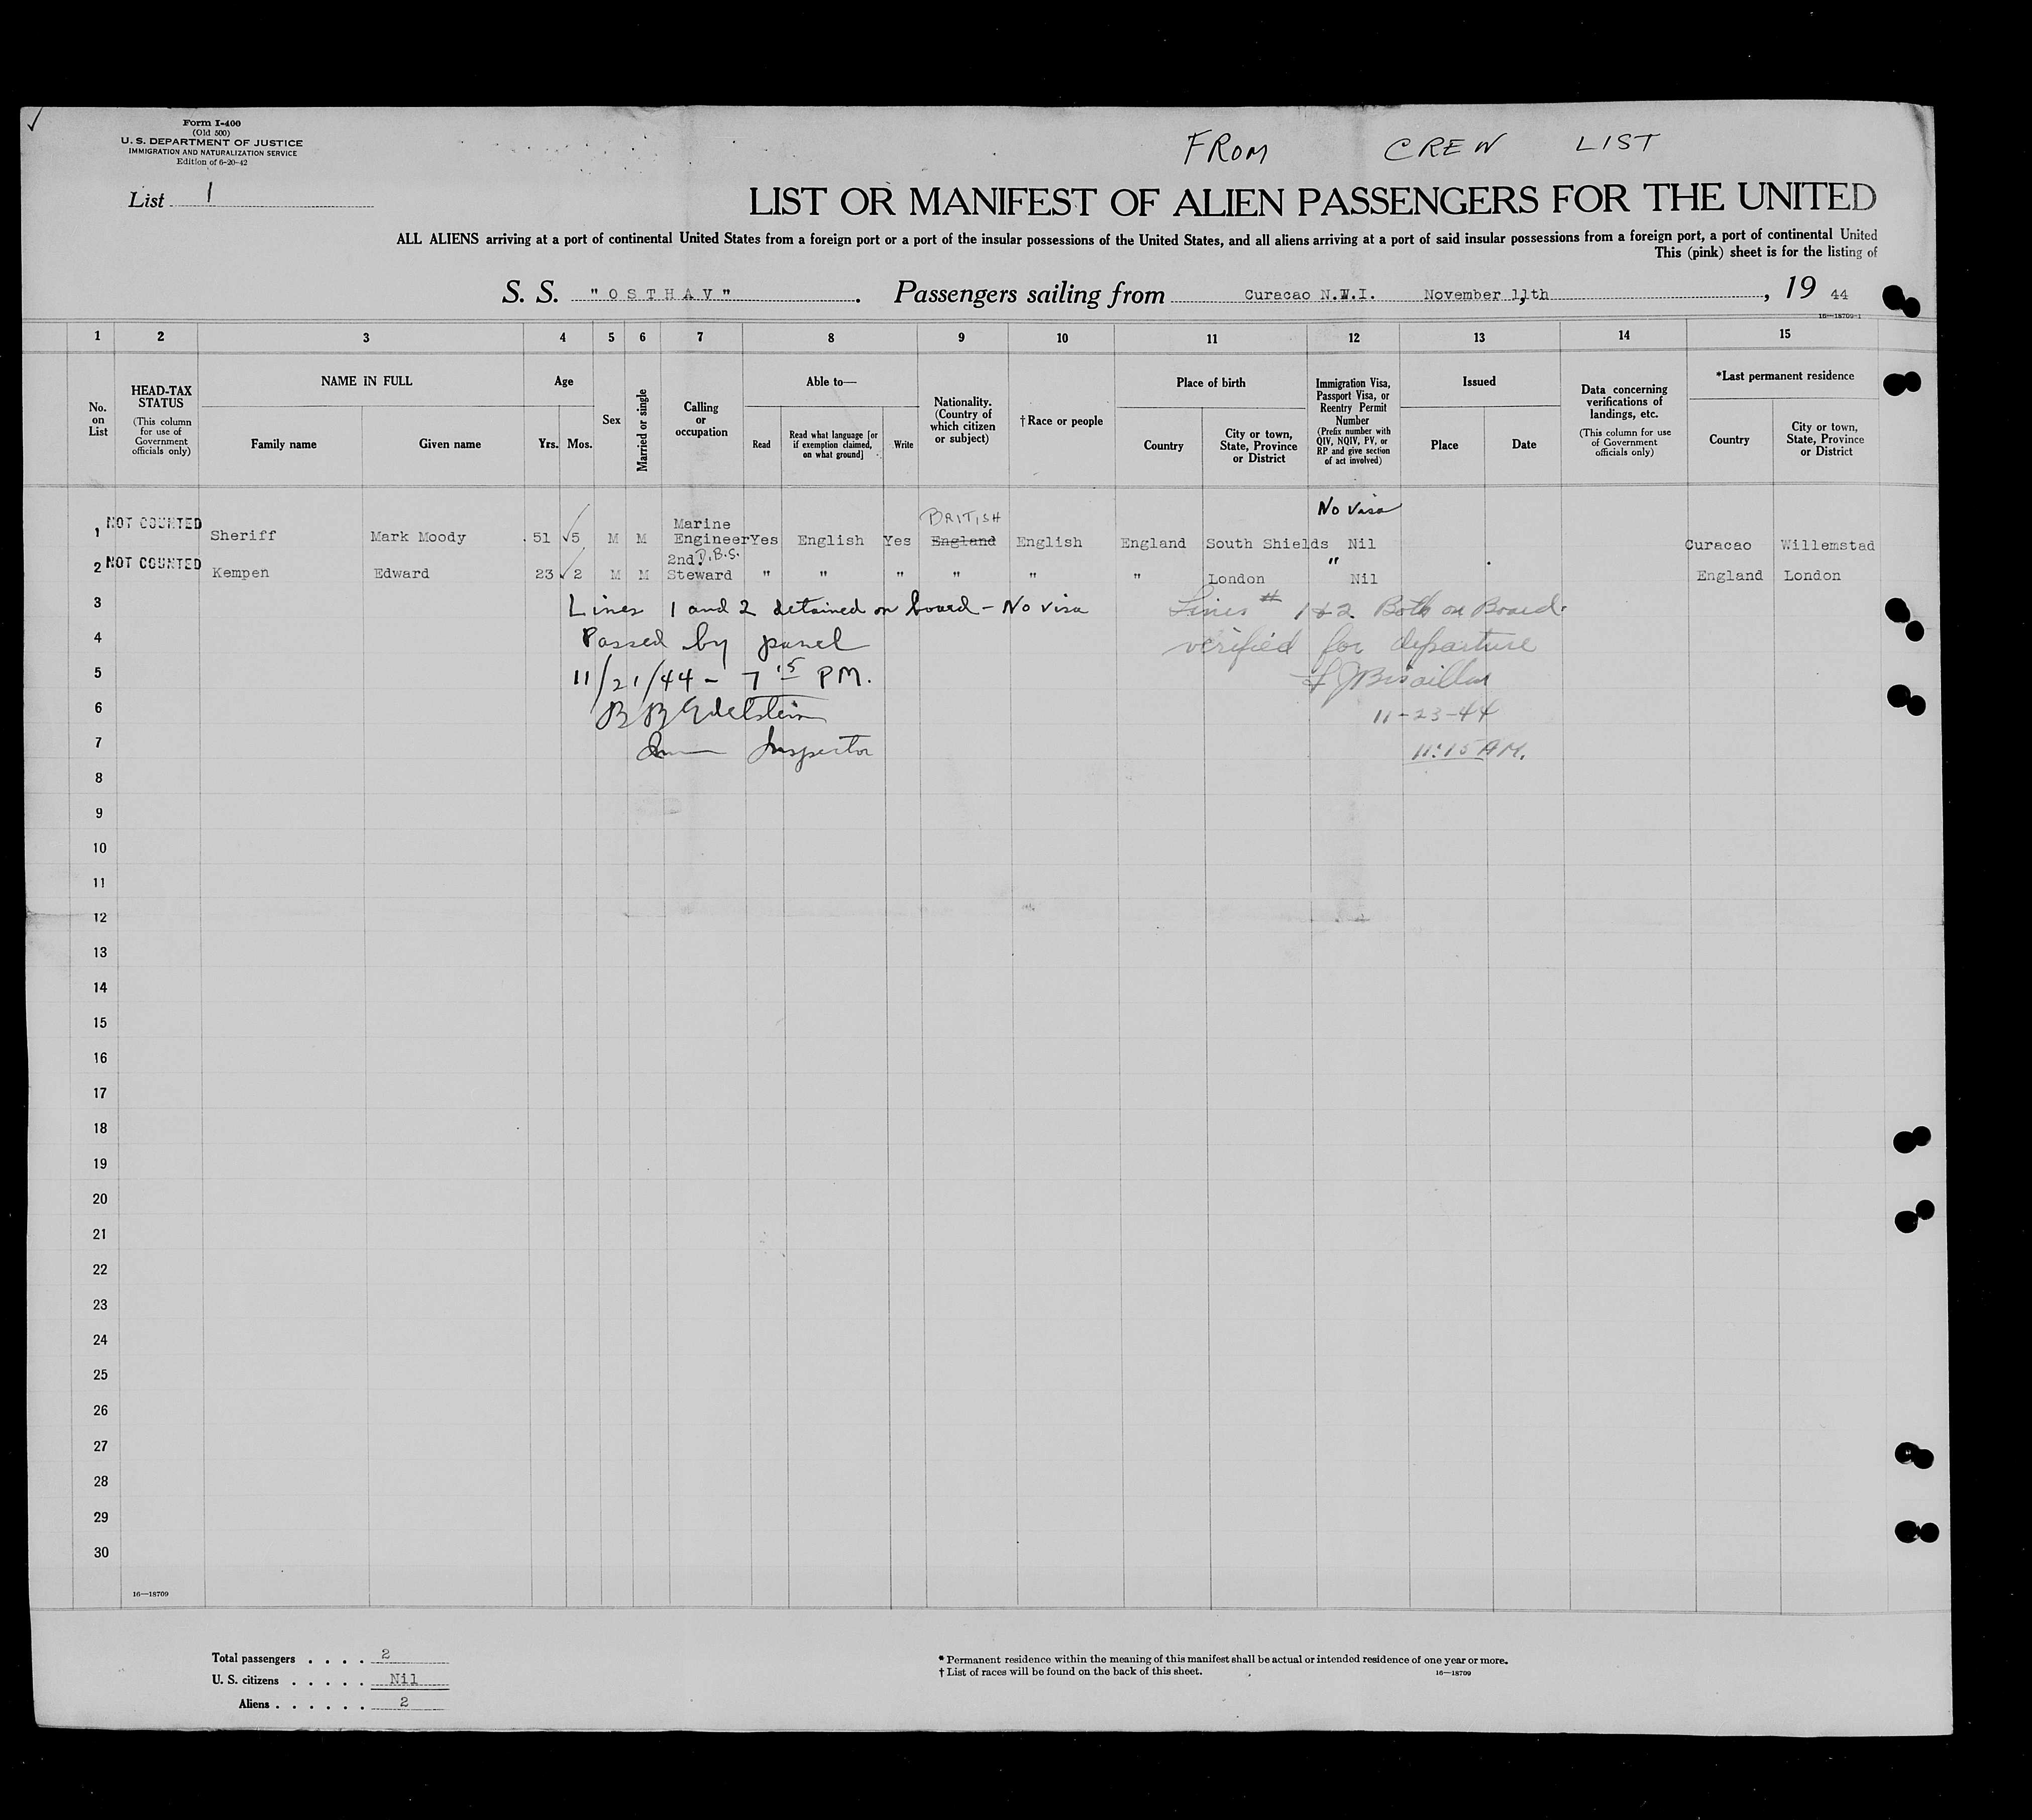 Form I-400
(Old 500)
U. S. DEPARTMENT OF JUSTICE
IMMIGRATION AND NATURALIZATION SERVICE
Edition of 6-20-42
FROM CREW LIST
List 1
LIST OR MANIFEST OF ALIEN PASSENGERS FOR THE UNITED
ALL ALIENS arriving at a port of continental United States from a foreign port or a port of the insular possessions of the United States, and all aliens arriving at a port of said insular possessions from a foreign port, a port of continental United
This (pink) sheet is for the listing of
S. S. "OSTHAV". Passengers sailing from Curacao N.W.I. November 11th, 19 44
16—18709-1
1 2 3 4 5 6 7 8 9 10 11 12 13 14 15
No. on List
HEAD-TAX STATUS
(This column for use of Government officials only)
NAME IN FULL
Family name Given name
Age
Yrs. Mos.
Sex
Married or single
Calling or occupation
Able to—
Read
Read what language [or if exemption claimed, on what ground]
Write
Nationality. (Country of which citizen or subject)
† Race or people
Place of birth
Country
City or town, State, Province or District
Immigration Visa, Passport Visa, or Reentry Permit Number
(Prefix number with QIV, NQIV, PV, or RP and give section of act involved)
Issued
Place Date
Data concerning verifications of landings, etc.
(This column for use of Government officials only)
*Last permanent residence
Country
City or town, State, Province or District
No visa
BRITISH
1 NOT COUNTED Sheriff Mark Moody 51 5 M M Marine Engineer Yes English Yes England English England South Shields Nil Curacao Willemstad
D.B.S.
2 NOT COUNTED Kempen Edward 23 2 M M 2nd. Steward " " " " " " London " Nil England London
3 Lines 1 and 2 detained on board - No visa Lines # 1 & 2 Both on Board.
4 Passed by panel verified for departure
5 11/21/44 - 7 15 PM.
6 B B Edelstein 11-23-44
7 Inspector 11:15 AM.
8
9
10
11
12
13
14
15
16
17
18
19
20
21
22
23
24
25
26
27
28
29
30
16—18709
Total passengers . . . . 2
U. S. citizens . . . . . Nil
Aliens . . . . . . 2
* Permanent residence within the meaning of this manifest shall be actual or intended residence of one year or more.
† List of races will be found on the back of this sheet. 16—18709